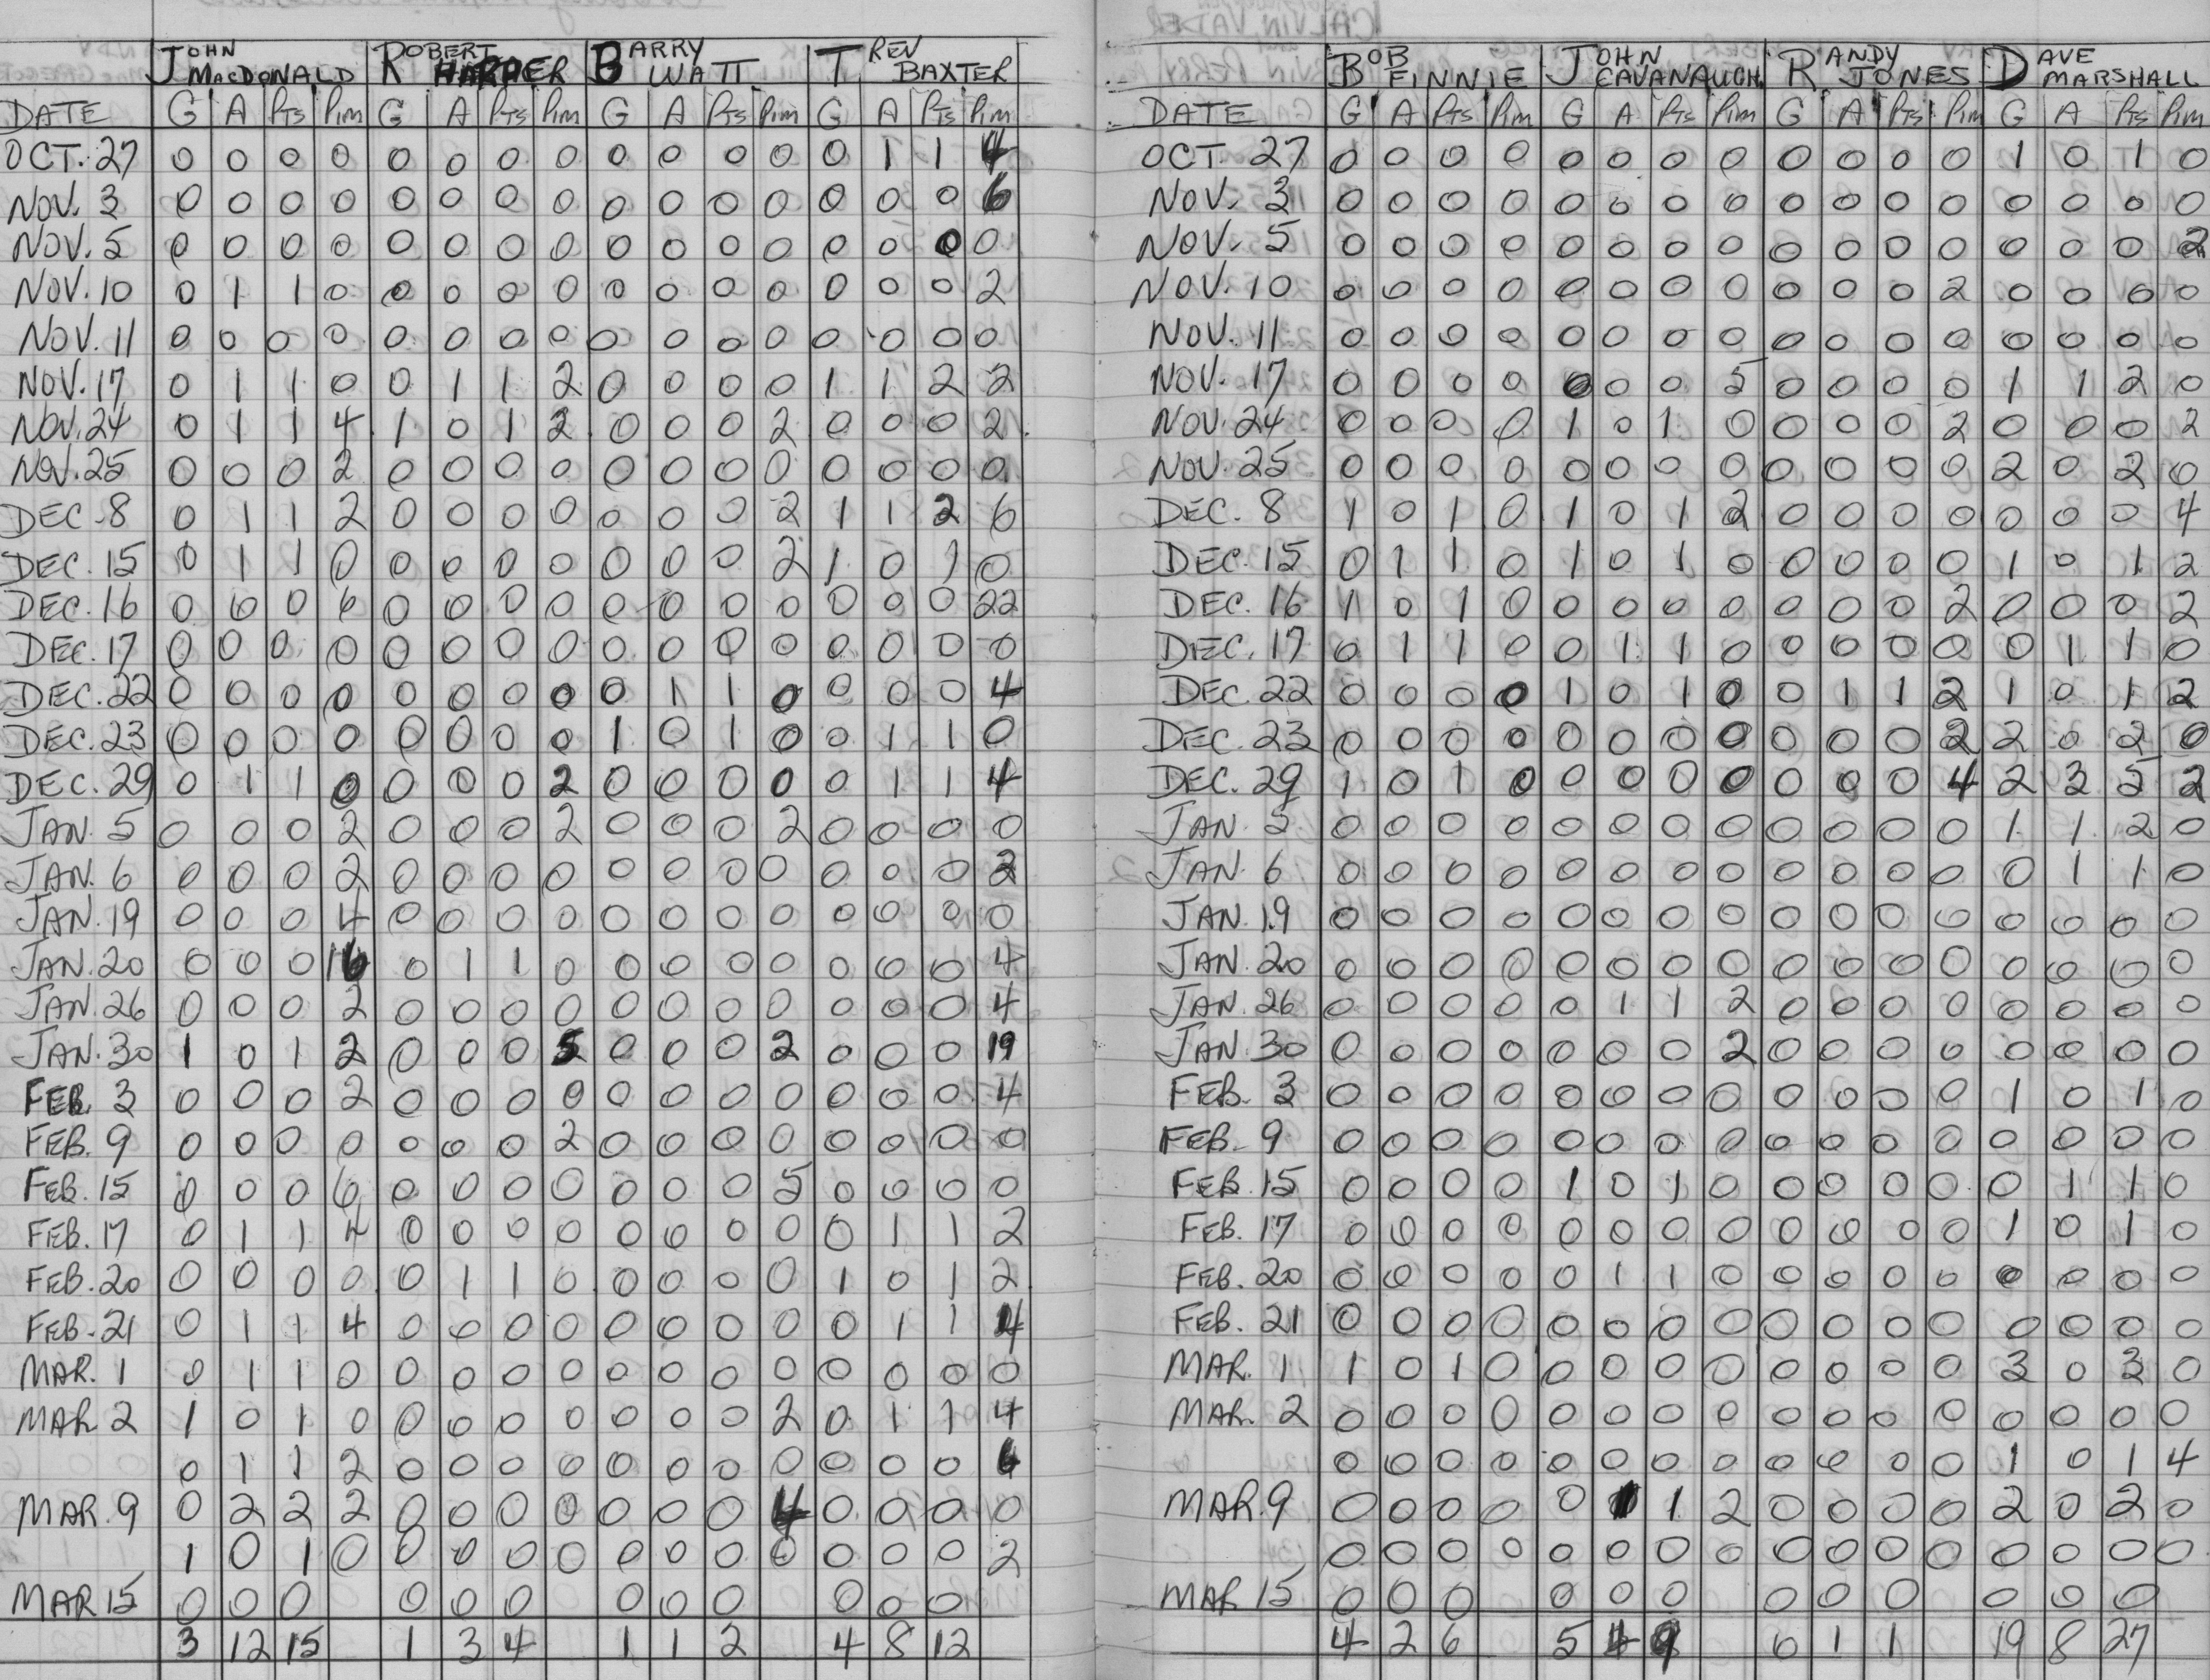 JOHN MACDONALD ROBERT HARPER BARRY WATT TREV BAXTER
DATE G A Pts Pim G A Pts Pim G A Pts Pim G A Pts Pim
OCT. 27 0 0 0 0 0 0 0 0 0 0 0 0 0 1 1 4
NOV. 3 0 0 0 0 0 0 0 0 0 0 0 0 0 0 0 6
NOV. 5 0 0 0 0 0 0 0 0 0 0 0 0 0 0 0 0
NOV. 10 0 1 1 0 0 0 0 0 0 0 0 0 0 0 0 2
NOV. 11 0 0 0 0 0 0 0 0 0 0 0 0 0 0 0 0
NOV. 17 0 1 1 0 0 1 1 2 0 0 0 0 1 1 2 2
NOV. 24 0 1 1 4 1 0 1 2 0 0 0 2 0 0 0 2
NOV. 25 0 0 0 2 0 0 0 0 0 0 0 0 0 0 0 0
DEC. 8 0 1 1 2 0 0 0 0 0 0 0 2 1 1 2 6
DEC. 15 0 1 1 0 0 0 0 0 0 0 0 2 1 0 1 0
DEC. 16 0 0 0 6 0 0 0 0 0 0 0 0 0 0 0 22
DEC. 17 0 0 0 0 0 0 0 0 0 0 0 0 0 0 0 0
DEC. 22 0 0 0 0 0 0 0 0 0 1 1 0 0 0 0 4
DEC. 23 0 0 0 0 0 0 0 0 1 0 1 0 0 1 1 0
DEC. 29 0 1 1 0 0 0 0 2 0 0 0 0 0 1 1 4
JAN. 5 0 0 0 2 0 0 0 2 0 0 0 2 0 0 0 0
JAN. 6 0 0 0 2 0 0 0 0 0 0 0 0 0 0 0 2
JAN. 19 0 0 0 4 0 0 0 0 0 0 0 0 0 0 0 0
JAN. 20 0 0 0 16 0 1 1 0 0 0 0 0 0 0 0 4
JAN. 26 0 0 0 2 0 0 0 0 0 0 0 0 0 0 0 4
JAN. 30 1 0 1 2 0 0 0 5 0 0 0 2 0 0 0 19
FEB. 3 0 0 0 2 0 0 0 0 0 0 0 0 0 0 0 4
FEB. 9 0 0 0 0 0 0 0 2 0 0 0 0 0 0 0 0
FEB. 15 0 0 0 6 0 0 0 0 0 0 0 5 0 0 0 0
FEB. 17 0 1 1 4 0 0 0 0 0 0 0 0 0 1 1 2
FEB. 20 0 0 0 0 0 1 1 0 0 0 0 0 1 0 1 2
FEB. 21 0 1 1 4 0 0 0 0 0 0 0 0 0 1 1 4
MAR. 1 0 1 1 0 0 0 0 0 0 0 0 0 0 0 0 0
MAR 2 1 0 1 0 0 0 0 0 0 0 0 2 0 1 1 4
0 1 1 2 0 0 0 0 0 0 0 0 0 0 0 6
MAR. 9 0 2 2 2 0 0 0 0 0 0 0 4 0 0 0 0
1 0 1 0 0 0 0 0 0 0 0 0 0 0 0 2
MAR 15 0 0 0 0 0 0 0 0 0 0 0 0
3 12 15 1 3 4 1 1 2 4 8 12
BOB FINNIE JOHN CAVANAUGH RANDY JONES DAVE MARSHALL
DATE G A Pts Pim G A Pts Pim G A Pts Pim G A Pts Pim
OCT. 27 0 0 0 0 0 0 0 0 0 0 0 0 1 0 1 0
NOV. 3 0 0 0 0 0 0 0 0 0 0 0 0 0 0 0 0
NOV. 5 0 0 0 0 0 0 0 0 0 0 0 0 0 0 0 2
NOV. 10 0 0 0 0 0 0 0 0 0 0 0 2 0 0 0 0
NOV. 11 0 0 0 0 0 0 0 0 0 0 0 0 0 0 0 0
NOV. 17 0 0 0 0 0 0 0 5 0 0 0 0 1 1 2 0
NOV. 24 0 0 0 0 1 0 1 0 0 0 0 2 0 0 0 2
NOV. 25 0 0 0 0 0 0 0 0 0 0 0 0 2 0 2 0
DEC. 8 1 0 1 0 1 0 1 2 0 0 0 0 0 0 0 4
DEC. 15 0 1 1 0 1 0 1 0 0 0 0 0 1 0 1 2
DEC. 16 1 0 1 0 0 0 0 0 0 0 0 2 0 0 0 2
DEC. 17 0 1 1 0 0 1 1 0 0 0 0 0 0 1 1 0
DEC. 22 0 0 0 0 1 0 1 0 0 1 1 2 1 0 1 2
DEC. 23 0 0 0 0 0 0 0 0 0 0 0 2 2 0 2 0
DEC. 29 1 0 1 0 0 0 0 0 0 0 0 4 2 3 5 2
JAN. 5 0 0 0 0 0 0 0 0 0 0 0 0 1 1 2 0
JAN. 6 0 0 0 0 0 0 0 0 0 0 0 0 0 1 1 0
JAN. 19 0 0 0 0 0 0 0 0 0 0 0 0 0 0 0 0
JAN. 20 0 0 0 0 0 0 0 0 0 0 0 0 0 0 0 0
JAN. 26 0 0 0 0 0 1 1 2 0 0 0 0 0 0 0 0
JAN. 30 0 0 0 0 0 0 0 2 0 0 0 0 0 0 0 0
FEB. 3 0 0 0 0 0 0 0 0 0 0 0 0 1 0 1 0
FEB. 9 0 0 0 0 0 0 0 0 0 0 0 0 0 0 0 0
FEB. 15 0 0 0 0 1 0 1 0 0 0 0 0 0 1 1 0
FEB. 17 0 0 0 0 0 0 0 0 0 0 0 0 1 0 1 0
FEB. 20 0 0 0 0 0 1 1 0 0 0 0 0 0 0 0 0
FEB. 21 0 0 0 0 0 0 0 0 0 0 0 0 0 0 0 0
MAR. 1 1 0 1 0 0 0 0 0 0 0 0 0 3 0 3 0
MAR. 2 0 0 0 0 0 0 0 0 0 0 0 0 0 0 0 0
0 0 0 0 0 0 0 0 0 0 0 0 1 0 1 4
MAR. 9 0 0 0 0 0 1 1 2 0 0 0 0 2 0 2 0
0 0 0 0 0 0 0 0 0 0 0 0 0 0 0 0
MAR 15 0 0 0 0 0 0 0 0 0 0 0 0
4 2 6 5 4 9 0 1 1 19 8 27